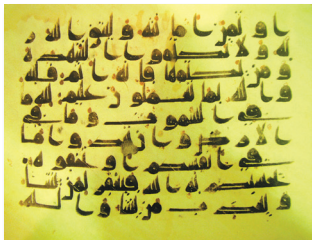 اوتمن امنته وليتق الله ر
به ولا تكتموا الشهدة
ومن يكتمها فانه اثم قلبه
والله بما تعملون عليم لله ما
في السموت وما في
الارض وان تبدوا ما
في انفسكم او تخفوه
يحاسبكم به الله فيغفر لمن يشا
ويعذب من يشا والله